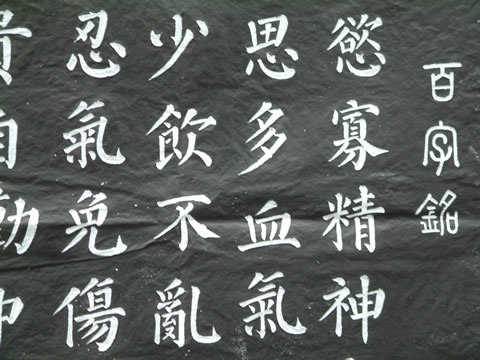 百字銘
慾寡精神
思多血氣
少飲不亂
忍氣免傷
貴自勤中